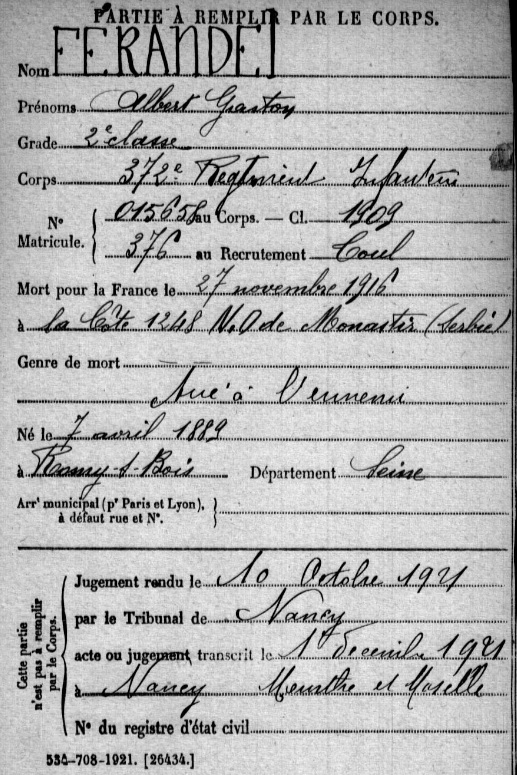 PARTIE À REMPLIR PAR LE CORPS.
Nom FÉRANDEL
Prénoms Albert Gaston
Grade 2e classe
Corps 372e Régiment Infanterie
N° Matricule. { 015658 au Corps. — Cl. 1909
376 au Recrutement Toul
Mort pour la France le 27 novembre 1916
à la Côte 1248 N.O de Monastir (Serbie)
Genre de mort
Tué à l'ennemi
Né le 7 avril 1889
à Rosny-s-Bois Département Seine
Arrt municipal (pr Paris et Lyon), à défaut rue et N°. }
Cette partie n'est pas à remplir par le Corps.
Jugement rendu le 10 Octobre 1921
par le Tribunal de Nancy
acte ou jugement transcrit le 1 décembre 1921
à Nancy Meurthe et Moselle
N° du registre d'état civil
534-708-1921. [26434.]